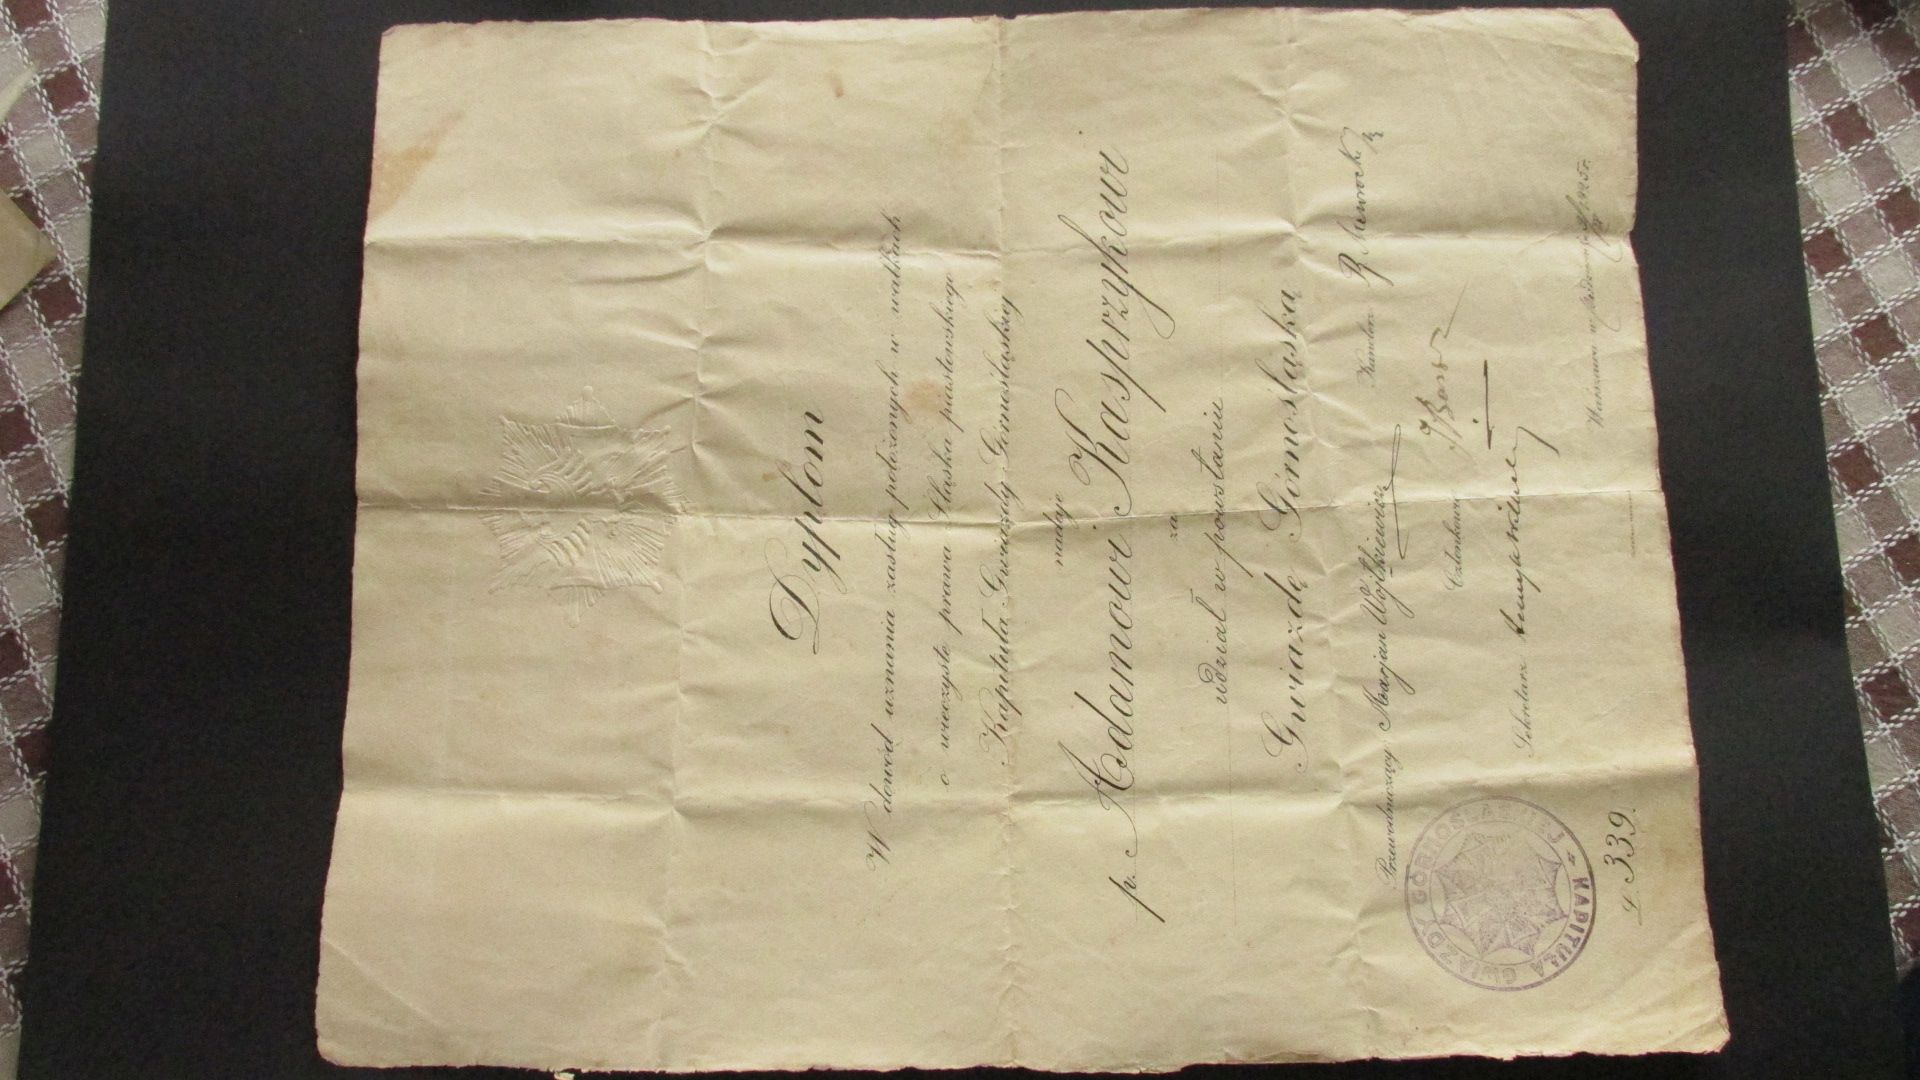 Dyplom
W dowód uznania zasług położonych w walkach
o wieczyste prawa Śląska piastowskiego
Kapituła Gwiazdy Górnośląskiej
nadaje
p. Adamowi Kasprzykowi
za
udział w powstaniu
Gwiazdę Górnośląską
Przewodniczący Marjan Wojtkiewicz Kanclerz
Członkowie
Sekretarz
Warszawa w 1925 r.
KAPITUŁA GWIAZDY GÓRNOŚLĄSKIEJ
L. 339.